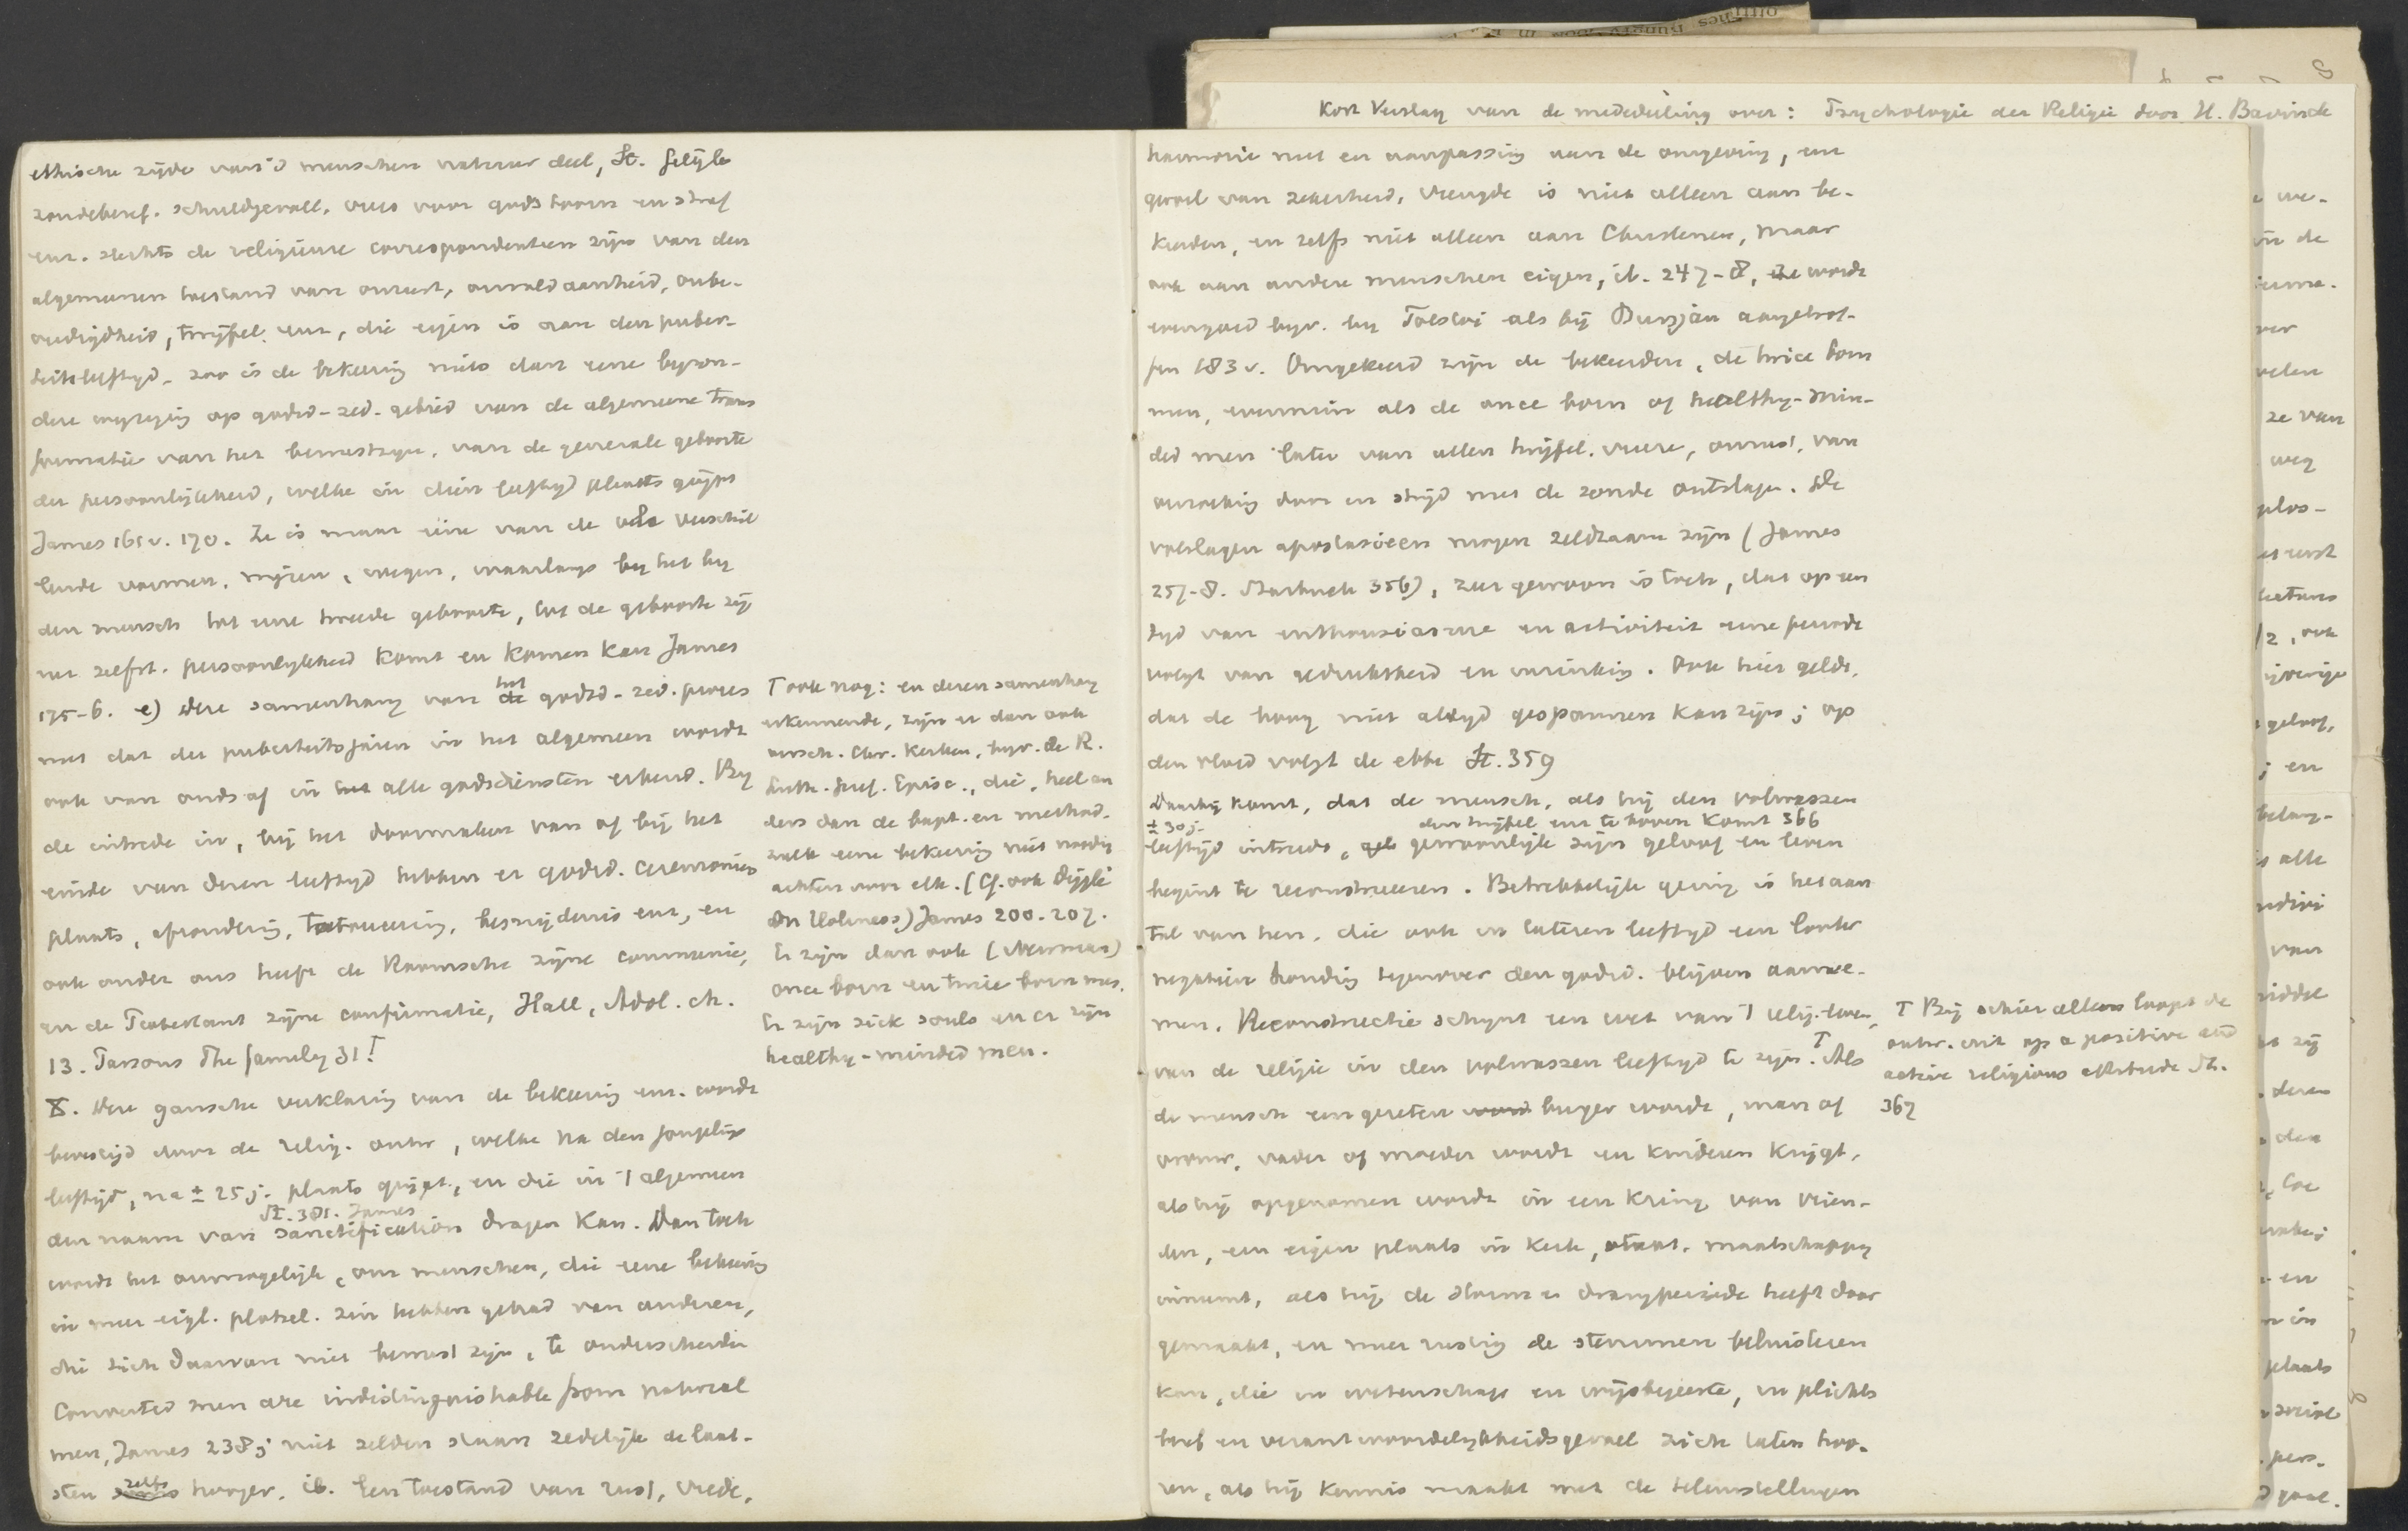 Kort Verslag van de mededeeling over: Psychologie der Religie door H. Bavinck
ethische zijde van 's menschen natuur deel, St. gelijk
zondebesef, schuldgevoel, vrees voor gods toorn en straf
enz. slechts de religieuse correspondenten zijn van den
algemeenen toestand van onrust, onvoldaanheid, onbe-
vredigdheid, twijfel enz, die eigen is aan den puber-
teitsleeftijd, zoo is de bekeering niets dan eene byzon-
dere wijziging op godsd-zed. gebied van de algemeene trans
formatie van het bewustzyn, van de generale geboorte
der persoonlijkheid, welke in dien leeftyd plaats grijpt
James 165 v. 170. Ze is maar eene van de vele verschil
lende vormen, wijzen, wegen, waarlangs het by
den mensch tot eene tweede geboorte, tot de geboorte zij
ner zelfst. persoonlykheid komt en komen kan James
175-6. e) Deze samenhang van het godsd-zed. proces
met dat der puberteitsjaren in het algemeen wordt
ook van ouds af in alle godsdiensten erkend. By
de intrede in, bij het doormaken van of bij het
einde van dezen leeftyd hebben er godsd. ceremonien
plaats, afzondering, tatoueering, besnijdenis enz, en
ook onder ons heeft de Roomsche zijne communie,
en de Protestant zijne confirmatie, Hall, Adol. ch.
13. Parsons The family 31 T
8. Deze gansche verklaring van de bekeering enz. wordt
bevestigd door de relig. ontw, welke na den jongelings
leeftijd, na ± 25 j. plaats grijpt, en die in 't algemeen
St. 301. James
den naam van sanctification dragen kan. Dan toch
wordt het onmogelijk, om menschen, die eene bekeering
in meer eigl. plotsel. zin hebben gehad van anderen,
die zich daarvan niet bewust zijn, te onderscheiden
Converted men are indistinguishable from natural
men, James 238; niet zelden staan zedelijk de laat-
sten zelfs hooger, ib. Een toestand van rust, vrede,
T ook nog: en dezen samenhang
erkennende, zijn er dan ook
versch. Chr. Kerken, byv. de R.
Luth. Geref. Episc., die, heel an
ders dan de bapt. en method.
zulk eene bekeering niet noodig
achten voor elk. (Cf. ook Dijjk
On Holiness) James 200-207.
Er zijn dan ook (Newman)
once born en twice born men.
Er zijn sick souls en er zijn
healthy-minded men.
harmonie met en aanpassing aan de omgeving, een
gevoel van zekerheid, vreugde is niet alleen aan be-
keerden, en zelfs niet alleen aan Christenen, maar
ook aan andere menschen eigen, ib. 247-8, ze wordt
evengoed byv. by Tolstoi als bij Bunyan aangetrof-
fen 183 v. Omgekeerd zijn de bekeerden, de twice born
men, evenmin als de once born of healthy-min-
ded men later van allen twijfel, vrees, onrust, van
aanvechting door en strijd met de zonde ontslagen. De
volslagen apostasieen mogen zeldzaam zijn (James
257-8. Starbuck 356), zeer gewoon is toch, dat op een
tyd van enthousiasme en activiteit eene periode
volgt van gedruktheid en inzinking. Ook hier geldt,
dat de boog niet altyd gespannen kan zijn; op
den vloed volgt de ebbe St. 359
Daarbij komt, dat de mensch, als hij den volwassen
± 30 j.
den twijfel enz te boven komt 366
leeftijd intreedt, gewoonlijk zijn geloof en leven
begint te reconstrueeren. Betrekkelijk gering is het aan
tal van hen, die ook in lateren leeftyd een louter
negatieve houding tegenover den godsd. blijven aanne-
men. Reconstructie schynt een wet van 't relig. leven,
van de religie in den volwassen leeftyd te zijn. T Als
de mensch een gezeten burger wordt, man of
vrouw, vader of moeder wordt en kinderen krijgt,
als hij opgenomen wordt in een kring van vrien-
den, een eigen plaats in Kerk, staat, maatschappy
inneemt, als hij de storm en drangperiode heeft door
gemaakt, en meer rustig de stemmen beluisteren
kan, die in wetenschap en wijsbegeerte, in plichts
besef en verantwoordelykheidsgevoel zich laten hoo-
ren, als hij kennis maakt met de teleurstellingen
T Bij schier allen loopt de
ontw. uit op a positive and
active religious attitude St.
367